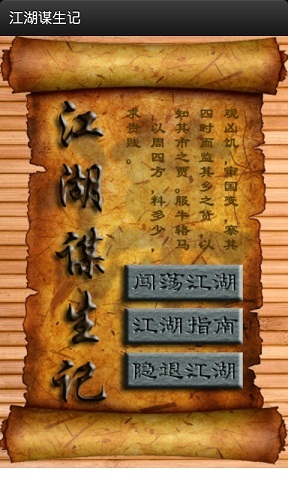 江湖谋生记
江湖谋生记
观凶饥，审国变，察其
四时而监其乡之货，以
知其市之贾。服牛辂马
，以周四方，料多少，
求贵贱。
闯荡江湖
江湖指南
隐退江湖